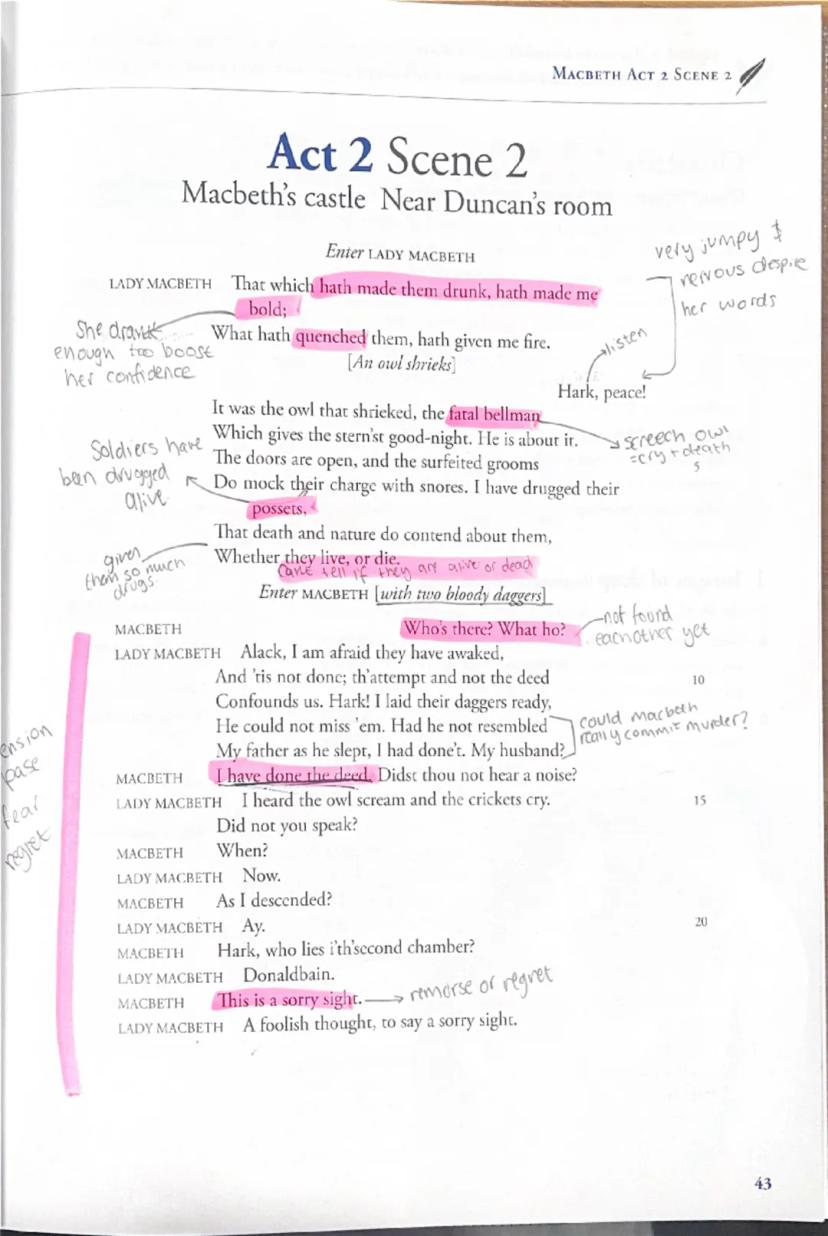 MACBETH ACT 2 SCENE 2
Act 2 Scene 2
Macbeth's castle Near Duncan's room
Enter LADY MACBETH
very jumpy &
nervous despire
her words
LADY MACBETH That which hath made them drunk, hath made me
bold;
She drank
enough too boost
her confidence
What hath quenched them, hath given me fire.
listen
[An owl shrieks]
Hark, peace!
It was the owl that shrieked, the fatal bellman
Which gives the stern'st good-night. He is about it.
screech owl
=cry + death
s
Soldiers have
been drugged
alive
The doors are open, and the surfeited grooms
Do mock their charge with snores. I have drugged their
possets,
That death and nature do contend about them,
given
them so much
drugs
Whether they live, or die.
cant tell if they are alive or dead
Enter MACBETH [with two bloody daggers]
MACBETH Who's there? What ho?
not found
eachother yet
LADY MACBETH Alack, I am afraid they have awaked,
And 'tis not done; th'attempt and not the deed 10
Confounds us. Hark! I laid their daggers ready,
He could not miss 'em. Had he not resembled
My father as he slept, I had done't. My husband?
could macbeth
really commit murder?
ension
pase
fear
regret
MACBETH I have done the deed. Didst thou not hear a noise?
LADY MACBETH I heard the owl scream and the crickets cry. 15
Did not you speak?
MACBETH When?
LADY MACBETH Now.
MACBETH As I descended?
LADY MACBETH Ay. 20
MACBETH Hark, who lies i'th'second chamber?
LADY MACBETH Donaldbain.
MACBETH This is a sorry sight. remorse or regret
LADY MACBETH A foolish thought, to say a sorry sight.
43